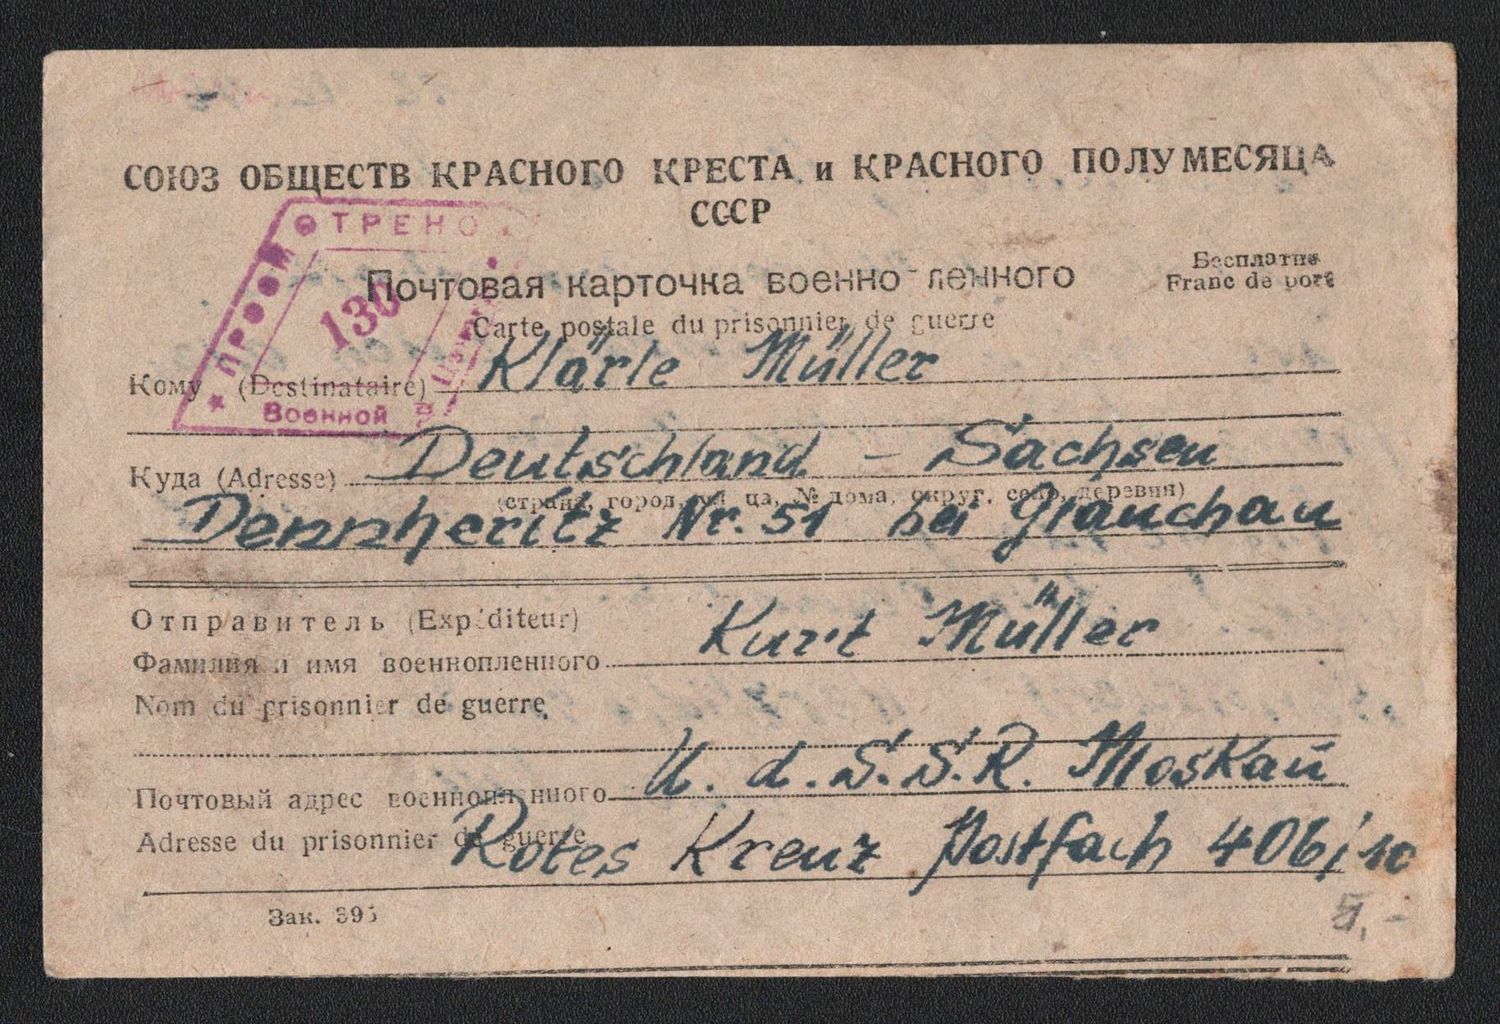 СОЮЗ ОБЩЕСТВ КРАСНОГО КРЕСТА и КРАСНОГО ПОЛУМЕСЯЦА
СССР
ПРОСМОТРЕНО
130
Военной
Почтовая карточка военнопленного
Carte postale du prisonnier de guerre
Бесплатно
Franc de port
Кому (Destinataire) Klärle Müller
Куда (Adresse) Deutschland - Sachsen
(страна, город, улица, № дома, округ, село, деревня)
Dennheritz Nr. 51 bei Glauchau
Отправитель (Expéditeur)
Фамилия и имя военнопленного Kurt Müller
Nom du prisonnier de guerre
Почтовый адрес военнопленного U. d. S. S. R. Moskau
Adresse du prisonnier de guerre Rotes Kreuz Postfach 406/10
Зак. 395
5,-